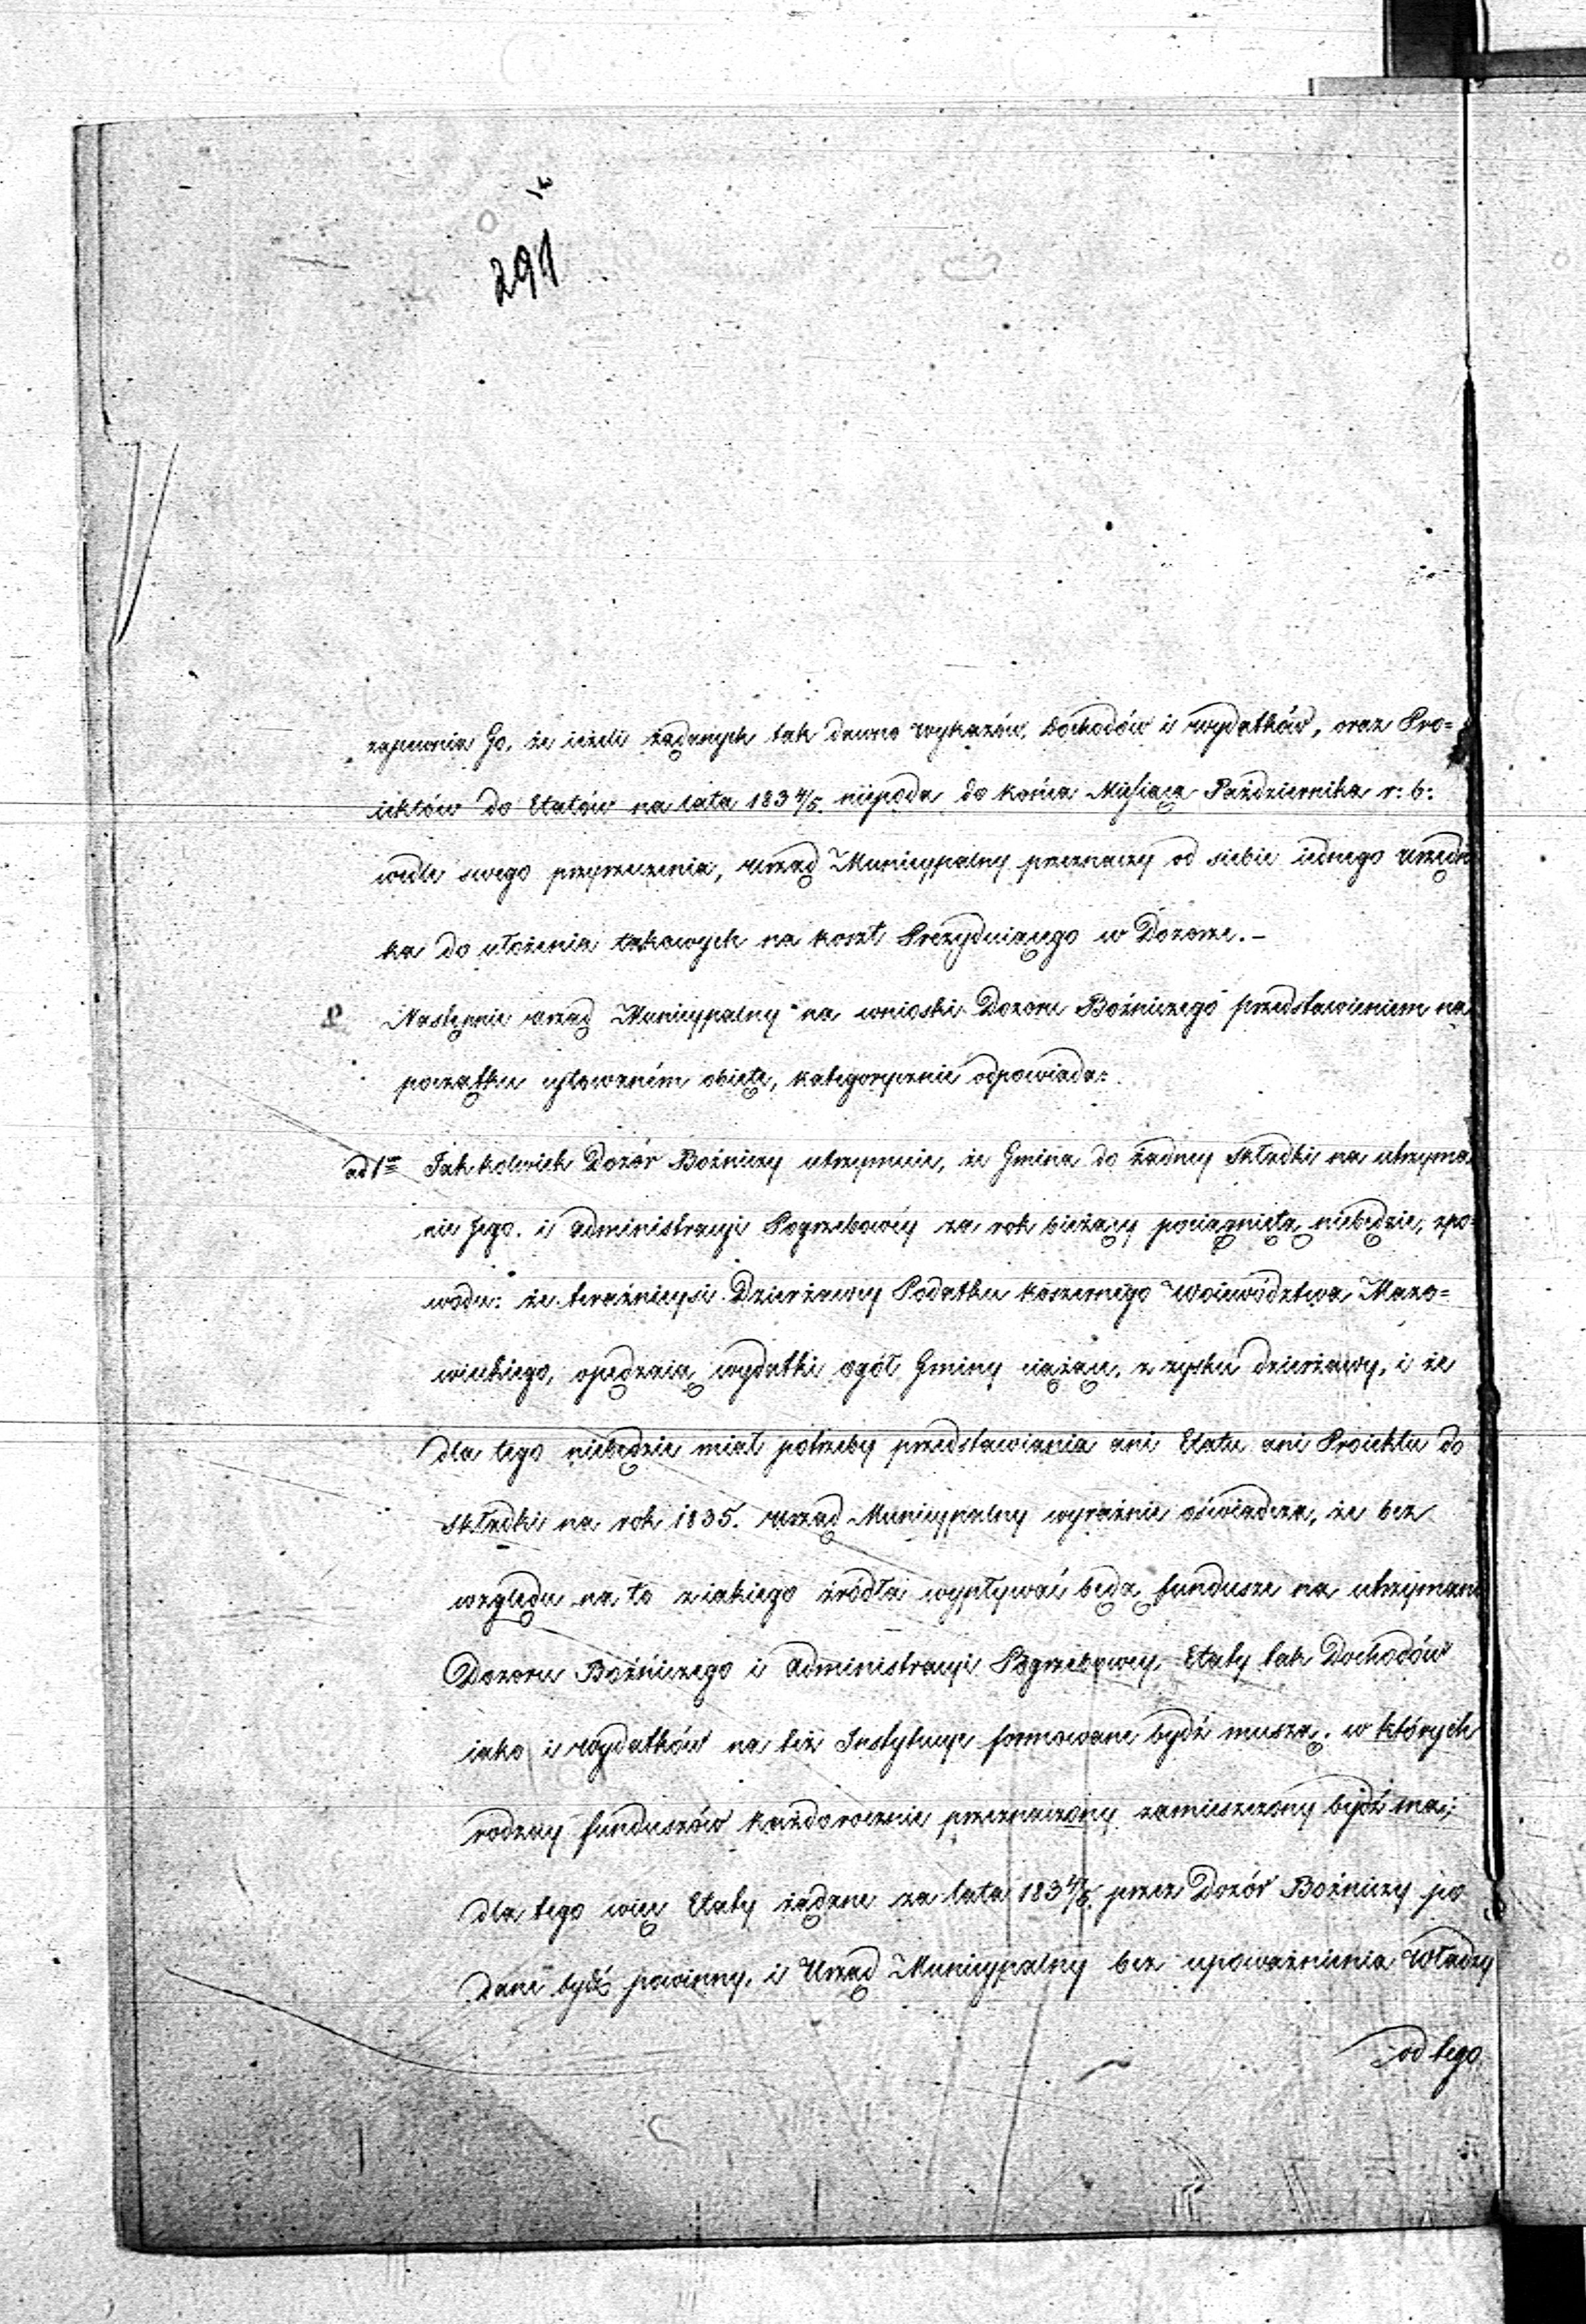 291
zapewnia Go, że ieżeli żądanych tak dawno wykazów, Dochodów i wydatków, oraz Pro=
iektów do Etatów na lata 183 4/5. niepoda do końca Miesiąca Października r: b:
wedle swego przyrzeczenia, Urząd Municypalny przeznaczy od siebie iednego Urzędni
ka do ułożenia takowych na koszt Prezyduiącego w Dozorze.–
Następnie Urząd Municypalny na wnioski Dozoru Bożniczego przedstawieniem na
początku cytowaném obięte, kategorycznie odpowiada:
ad 1º Jakkolwiek Dozór Bożniczy utrzymuie, że Gmina do żadney składki na utrzyma=
nie Jego. i administracyi Pogrzebowéy za rok bieżący pociągniętą niebędzie, z po=
wodu: że teraźnieysi Dzierżawcy Podatku koszernego Woiewództwa Mazo=
wieckiego, opędzaią wydatki ogół Gminy ciążące, z zysku dzierżawy, i że
dla tego niebędzie miał potrzeby przedstawiania ani Etatu ani Proiektu do
składki na rok 1835. Urząd Municypalny wyraźnie oświadcza, że bez
względu na to z iakiego źródła wypływać będą fundusze na utrzymanie
Dozoru Bożniczego i administracyi Pogrzebowey, Etaty tak Dochodów
iako i wydatków na też Instytucye formowane bydź muszą, w których
rodzay funduszów każdorocznie przeznaczony zamieszczony bydź ma;
dla tego więc Etaty żądane za lata 183 4/5. przez Dozór Bożniczy po
dane bydź powinny, i Urząd Municypalny bez upoważnienia Władzy
od tego